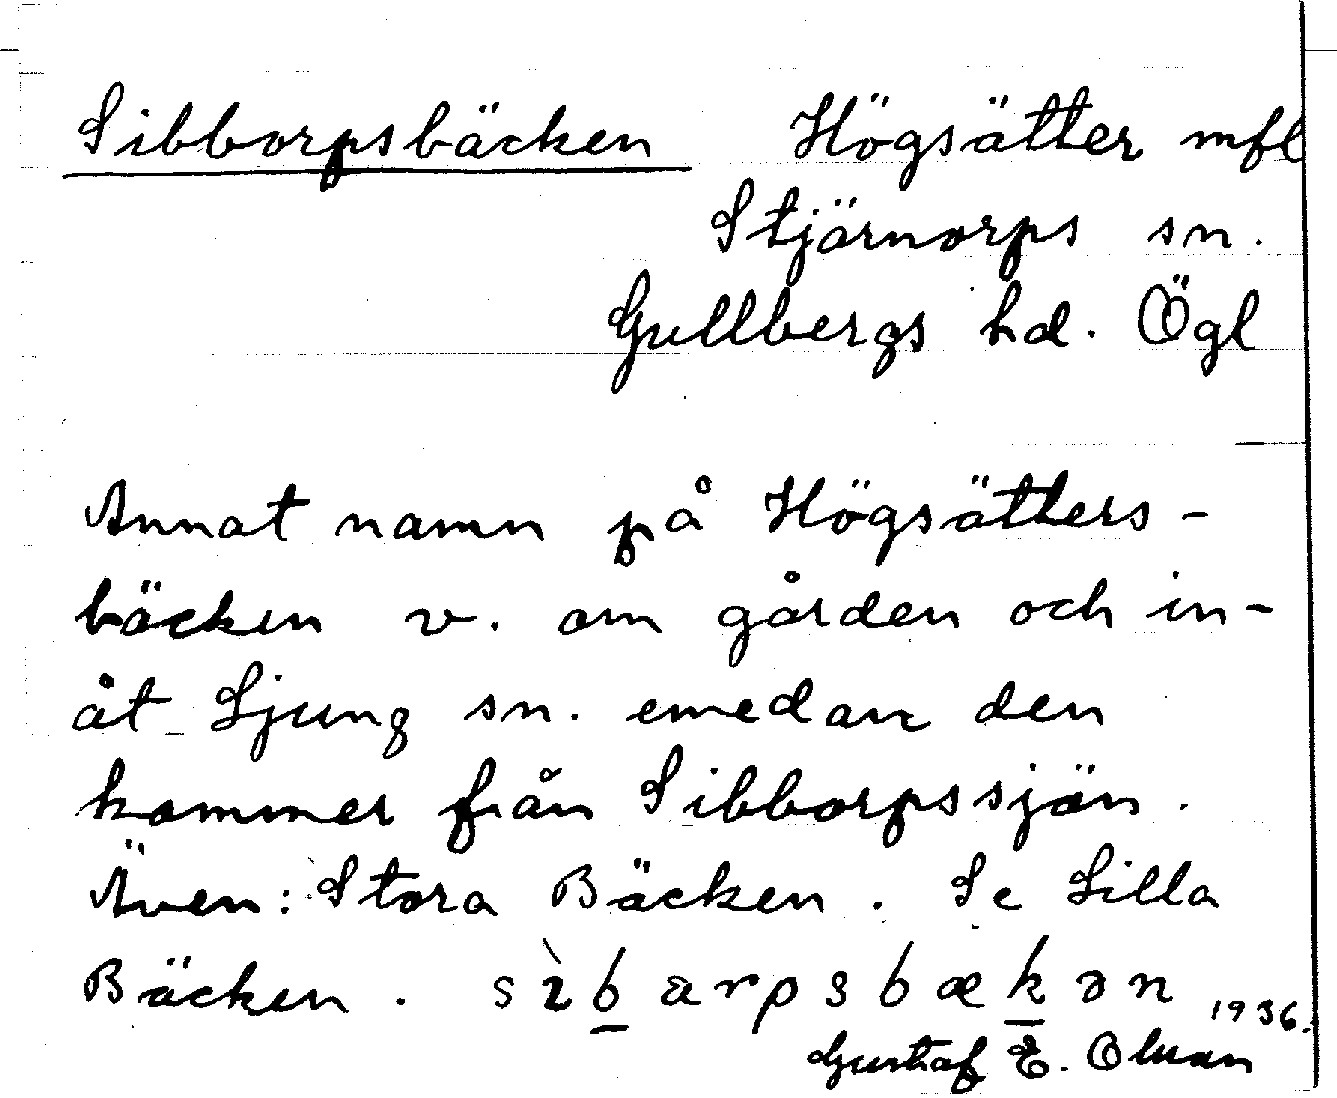 Sibborpsbäcken Högsätter mfl
Stjärnorps sn.
Gullbergs hd. Ögl
Annat namn på Högsätters-
bäcken v. om gården och in-
åt Ljung sn. emedan den
kommer från Sibborpssjön.
Även: Stora Bäcken. Se Lilla
Bäcken. sìb̲arpsbæk̲ən 1936.
Gustaf E. Olsson